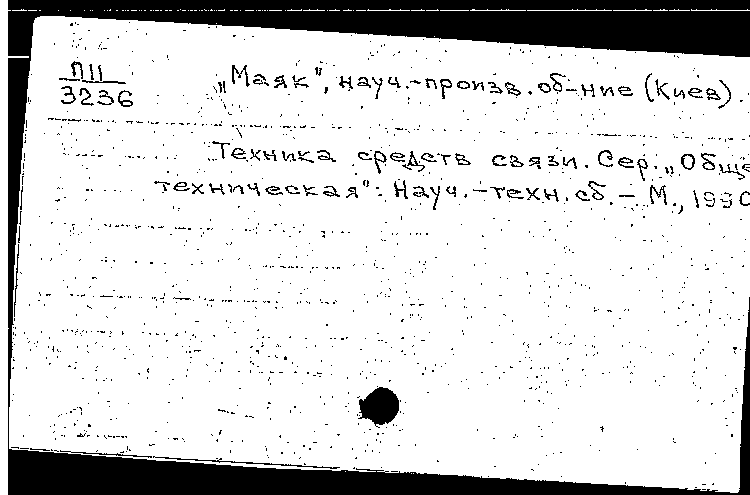 П11
3236
„Маяк", науч.-произв. об-ние (Киев).
Техника средств связи. Сер. „Обще
техническая": Науч.-техн. сб. – М., 1990